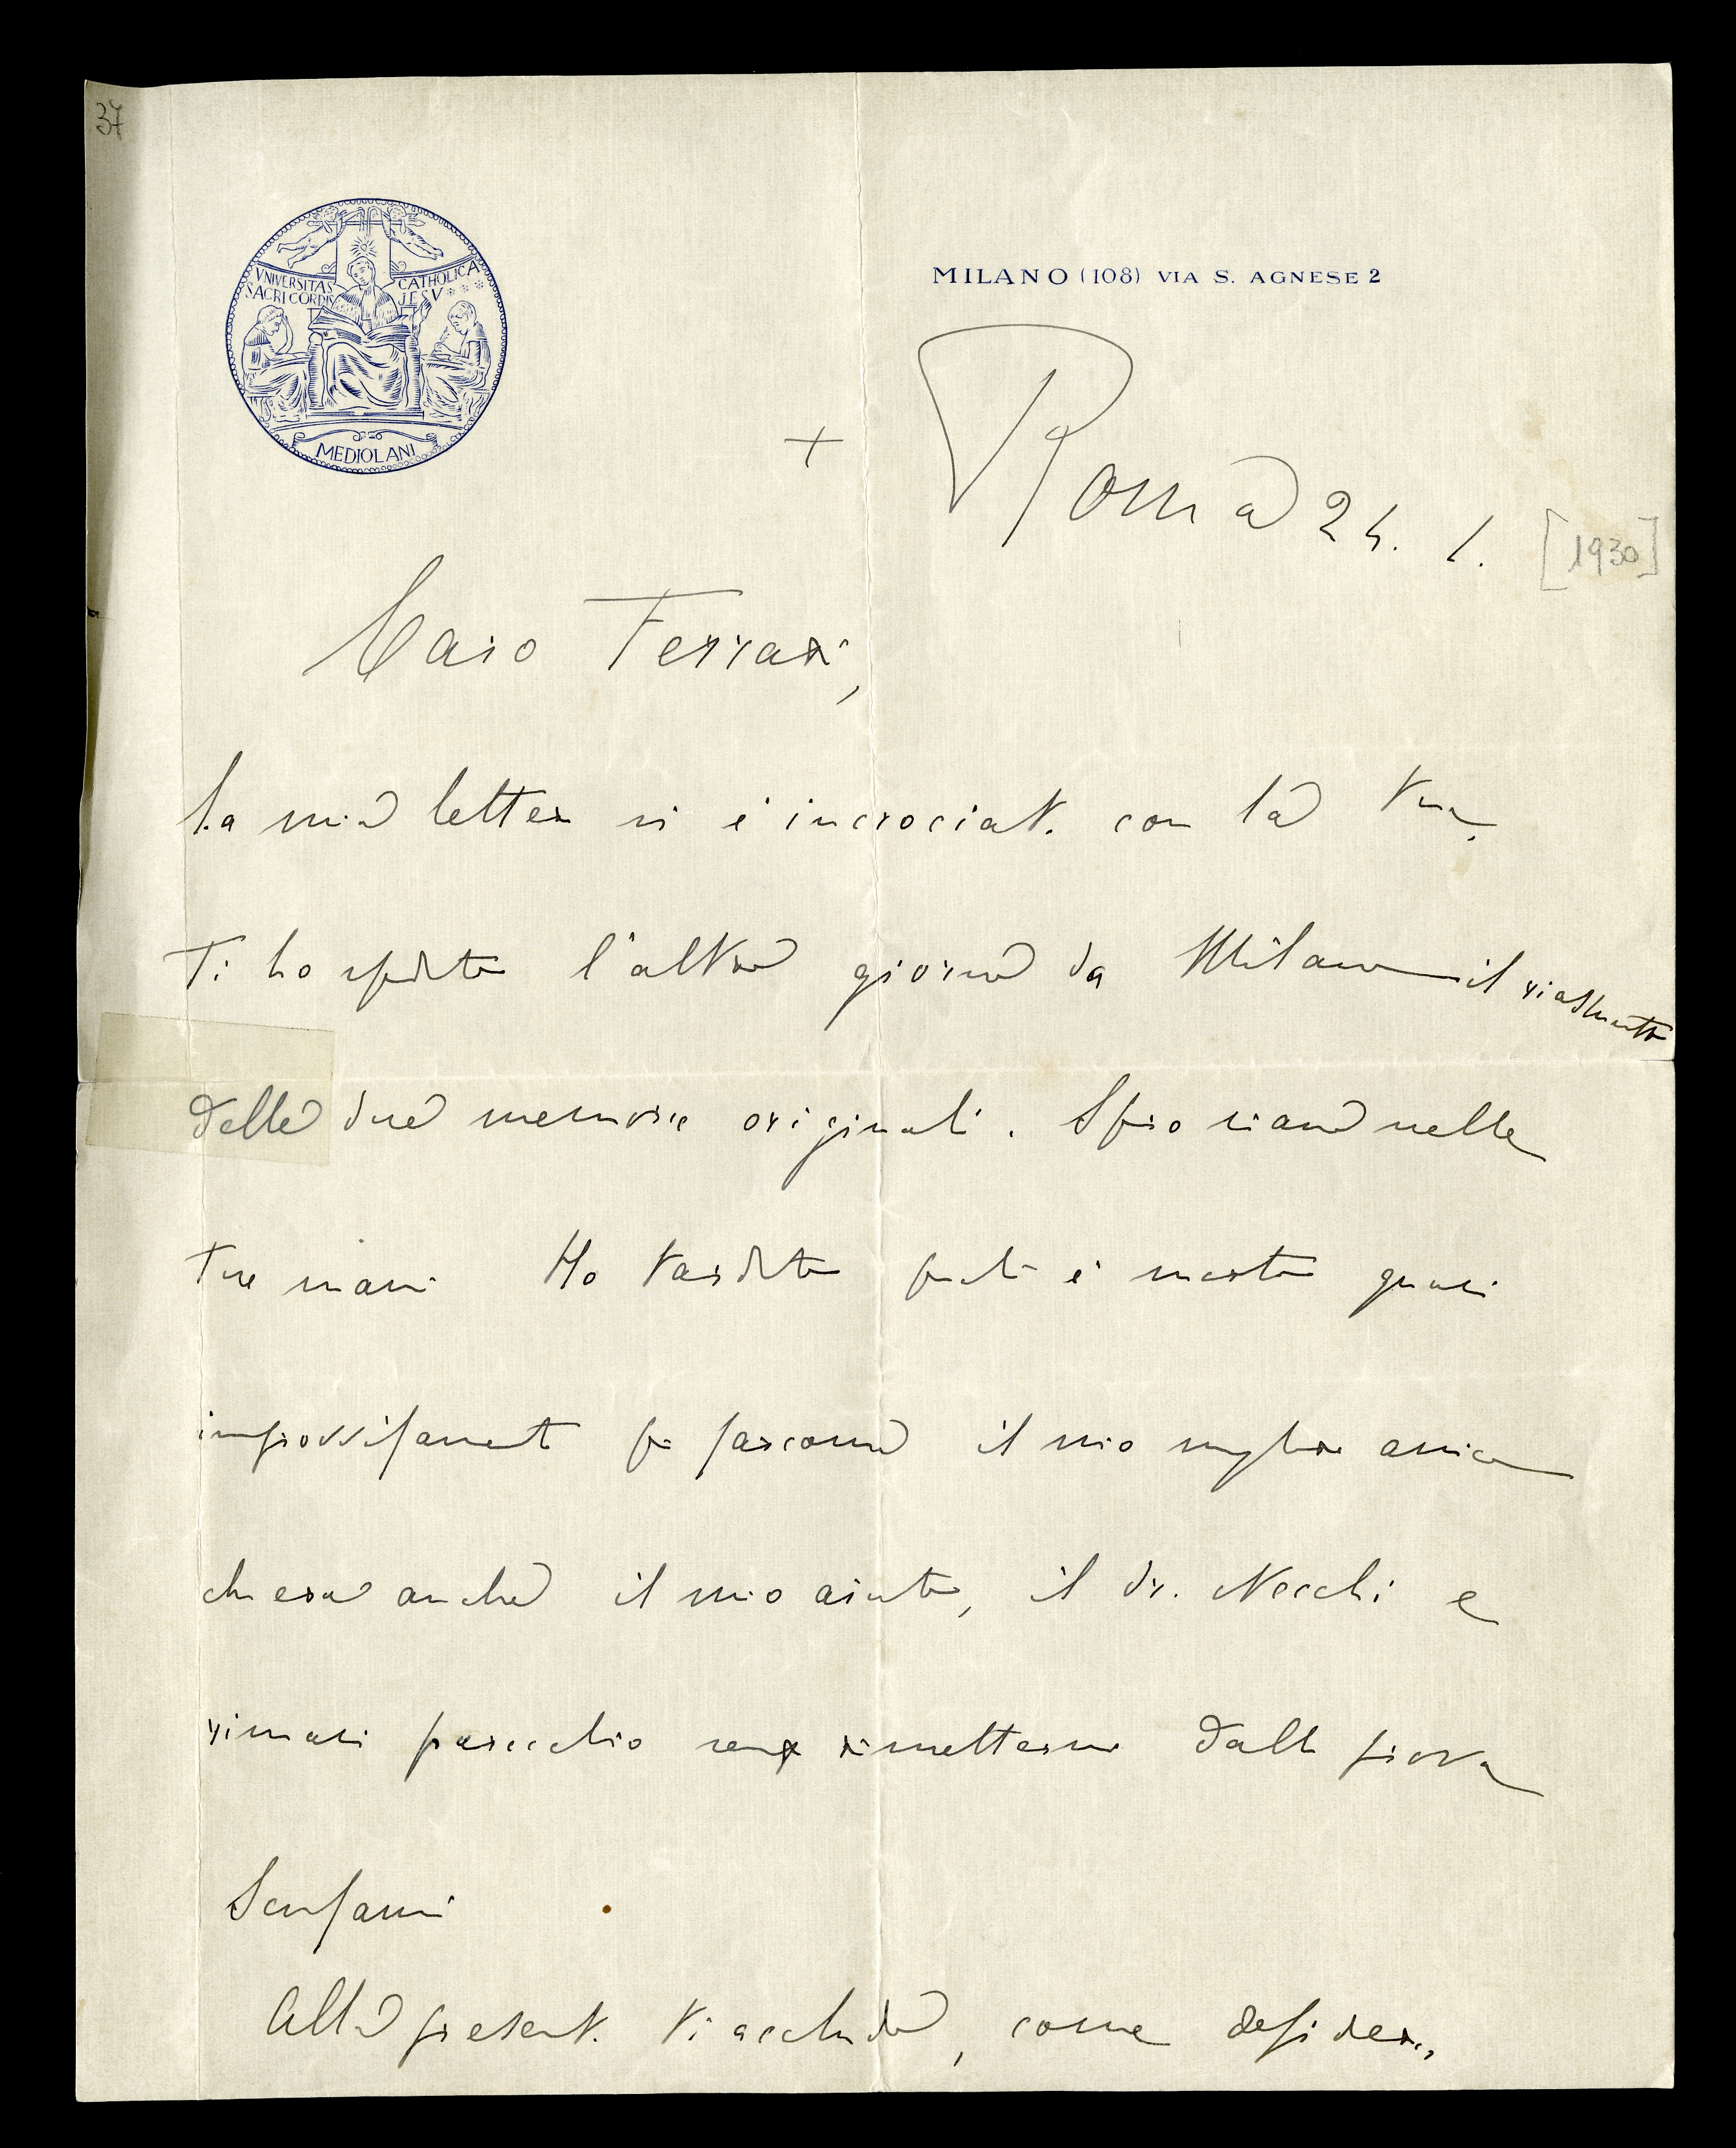 37
VNIVERSITAS CATHOLICA
SACRI CORDIS JESV
MEDIOLANI
MILANO (108) VIA S. AGNESE 2
+
Roma 24. 1. [1930]
Caro Ferrari,
La mia lettera si è incrociata con la tua.
Ti ho spedito l'altro giorno da Milano il riassunto
delle due memorie originali. Spero siano nelle
tue mani Ho tardato perché è morto quasi
improvvisamente fra Giacomo il mio miglior amico
che era anche il mio aiuto, il dr. Necchi e
rimasi parecchio senza rimettermi dalla prova
Scusami
Alla presente ti accludo, come desideri,